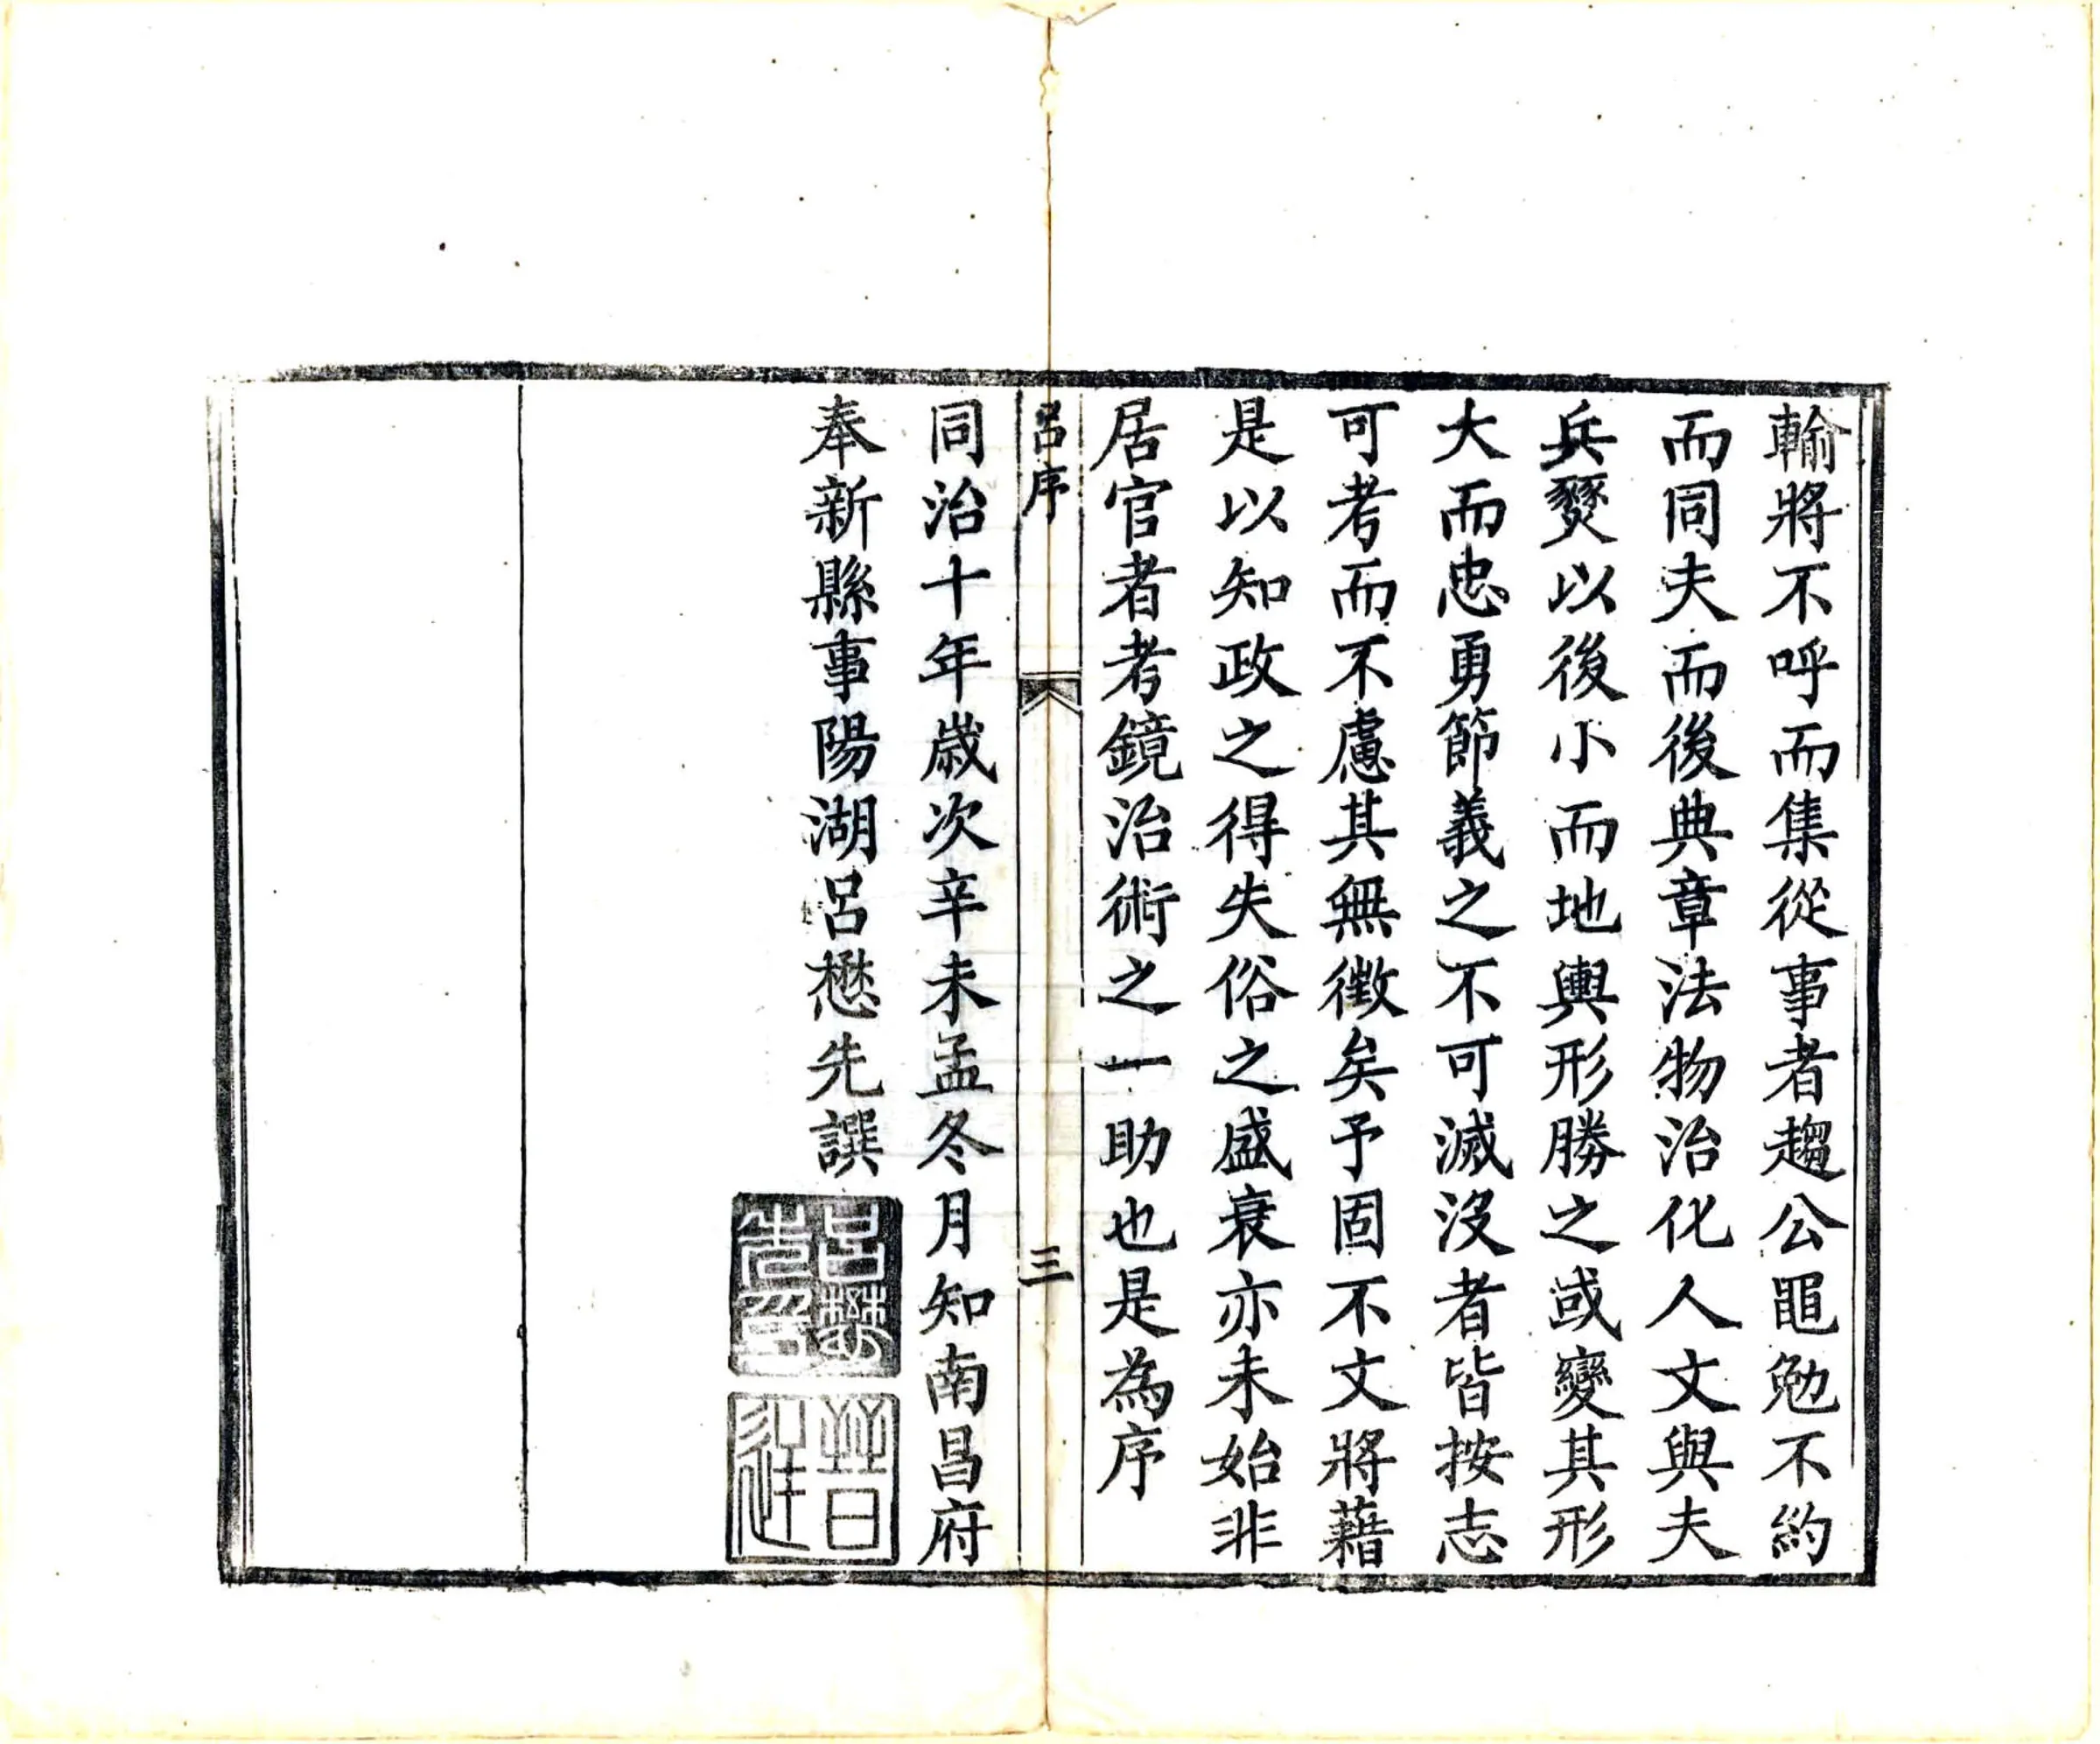 輸將不呼而集從事者趨公黽勉不約
而同夫而後典章法物治化人文與夫
兵燹以後小而地輿形勝之或變其形
大而忠勇節義之不可滅沒者皆按志
可考而不慮其無徵矣予固不文將藉
是以知政之得失俗之盛衰亦未始非
居官者考鏡治術之一助也是為序
呂序
三
同治十年歲次辛未孟冬月知南昌府
奉新縣事陽湖呂懋先譔
呂懋先印